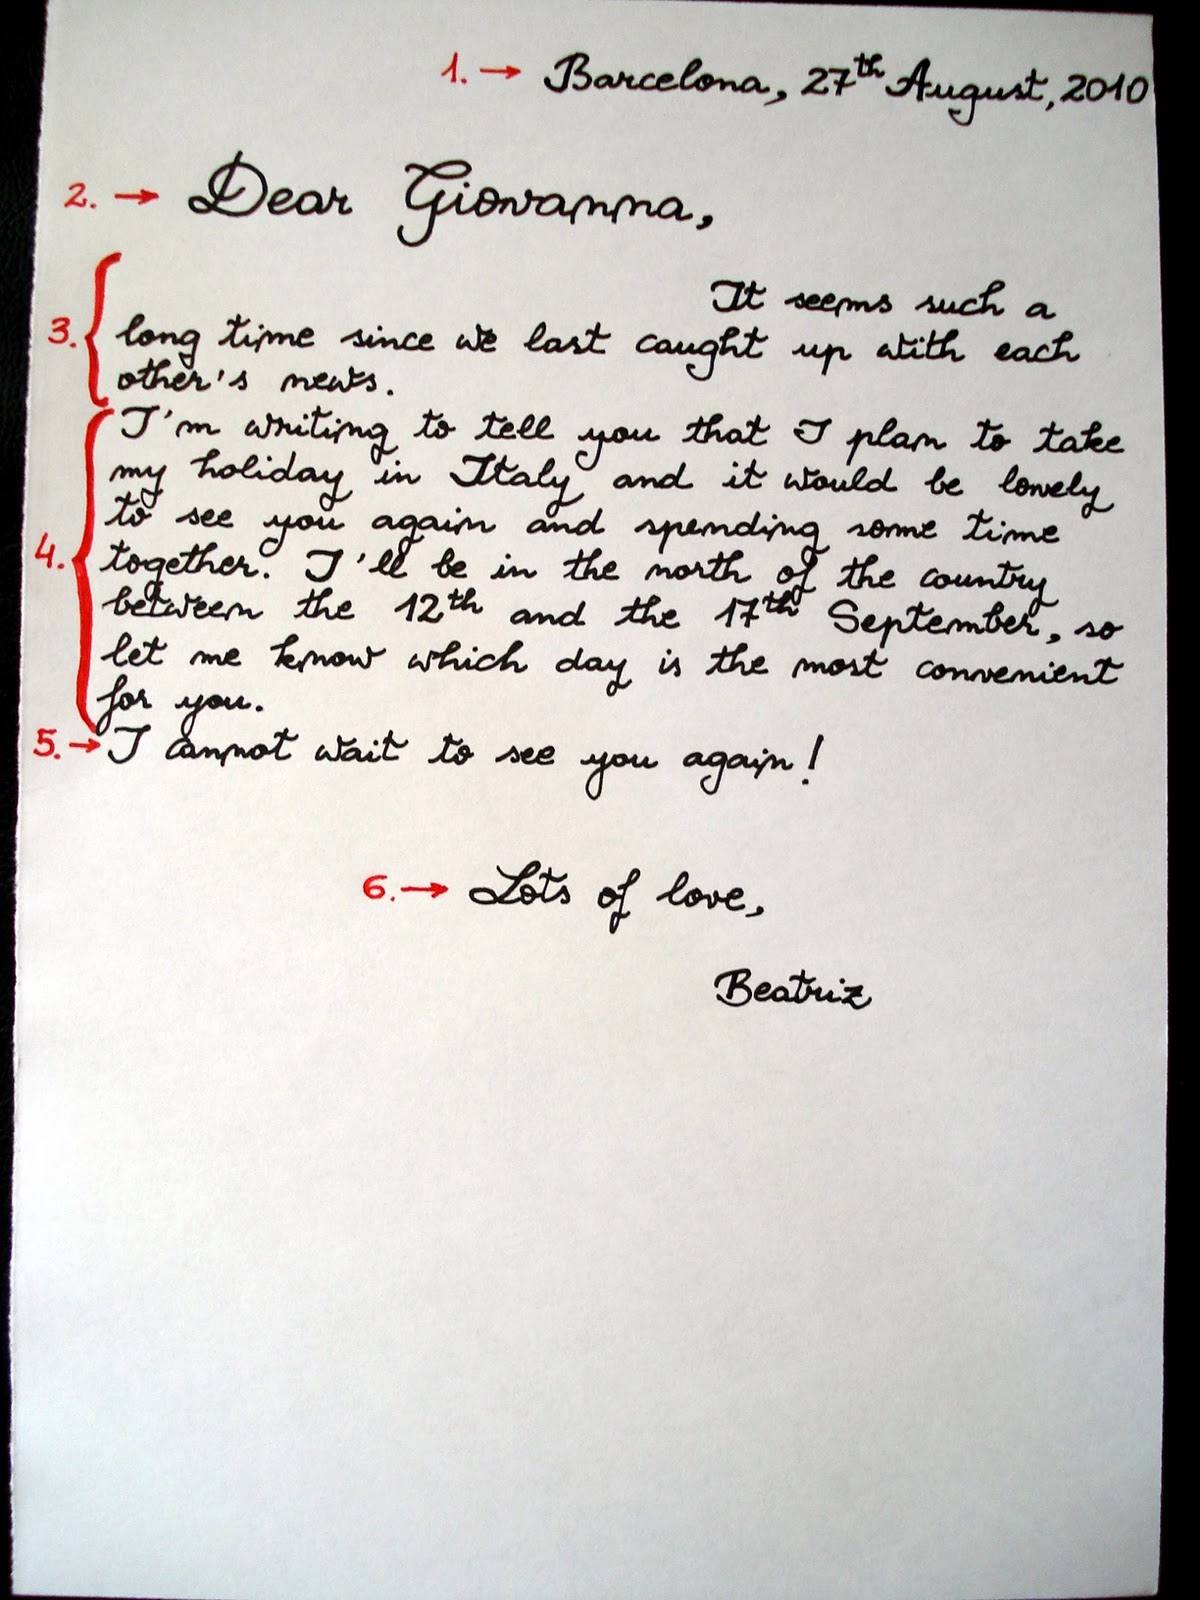 1. → Barcelona, 27th August, 2010
2. → Dear Giovanna,
It seems such a
3. long time since we last caught up with each
other's news.
I'm writing to tell you that I plan to take
my holiday in Italy and it would be lovely
to see you again and spending some time
4. together. I'll be in the north of the country
between the 12th and the 17th September, so
let me know which day is the most convenient
for you.
5. → I cannot wait to see you again!
6. → Lots of love,
Beatriz